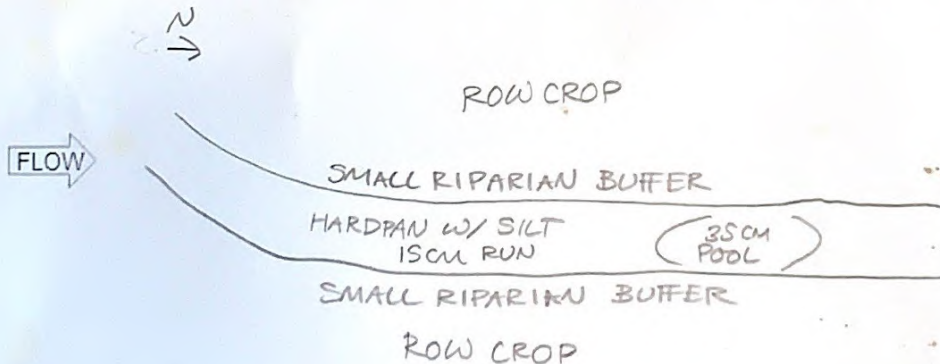 N
ROW CROP
FLOW
SMALL RIPARIAN BUFFER
HARDPAN W/ SILT
15CM RUN
35CM
POOL
SMALL RIPARIAN BUFFER
ROW CROP